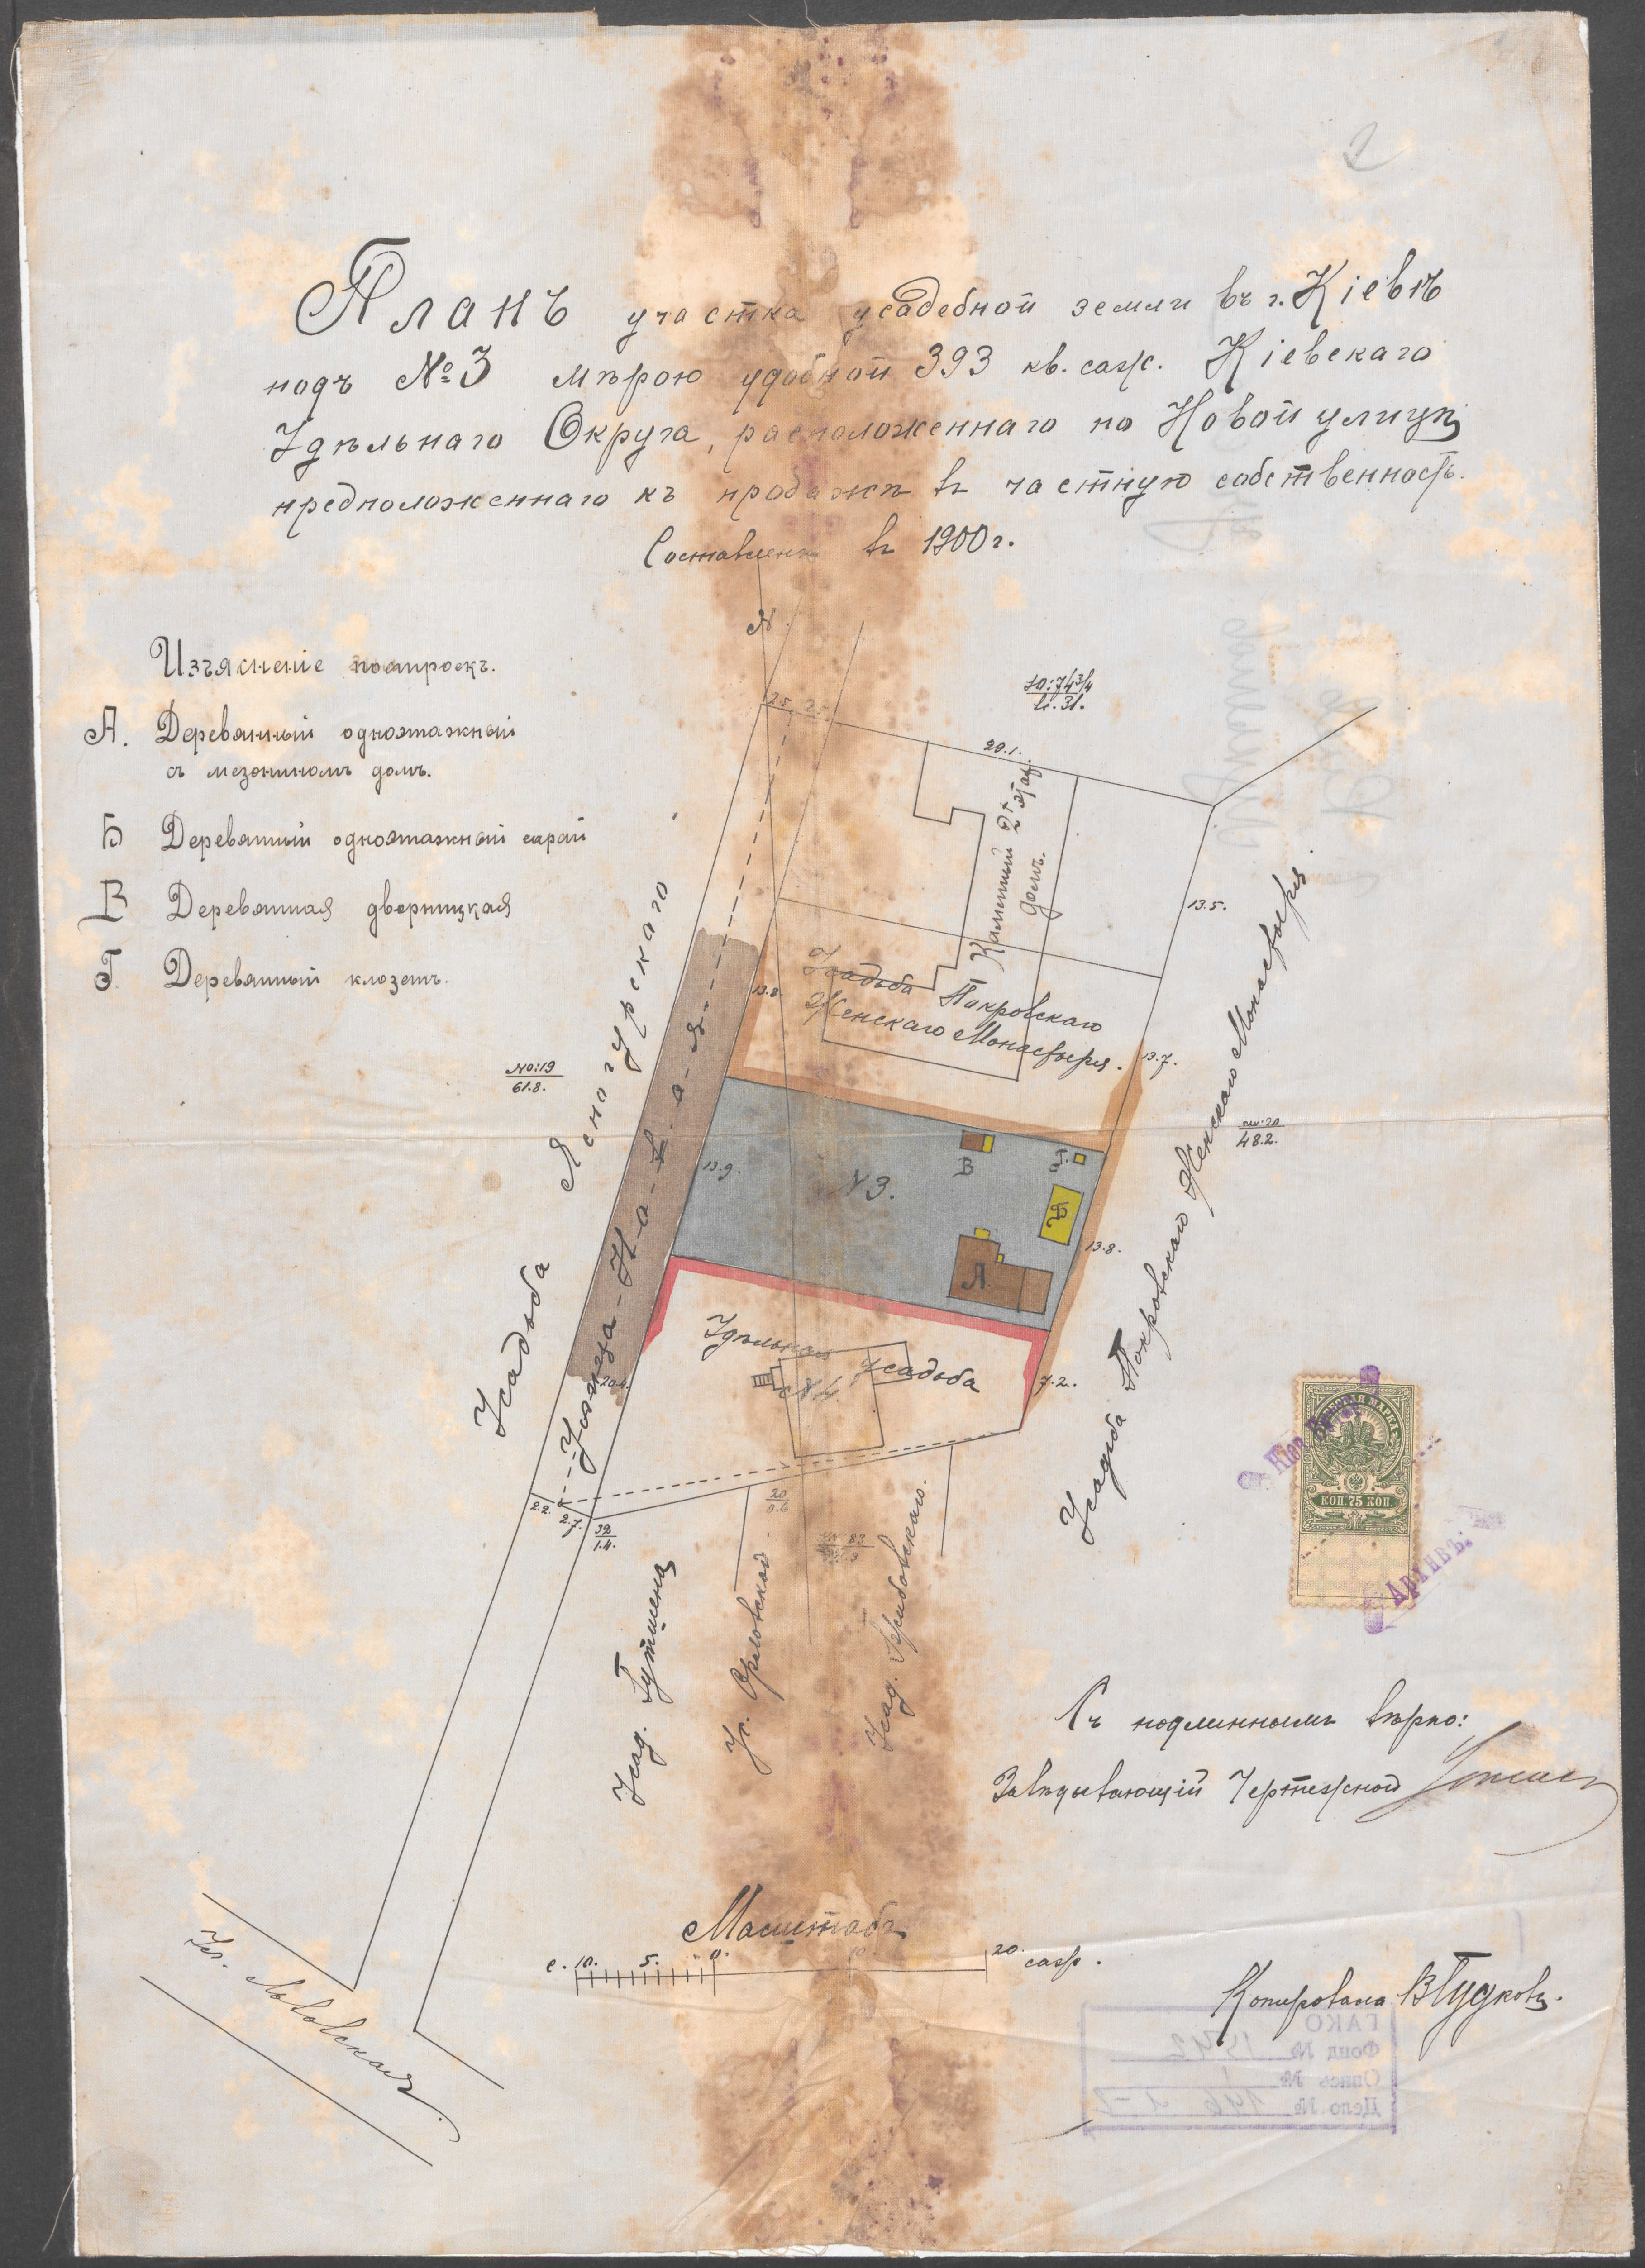 Планъ участка усадебной земли въ г. Кіевѣ
подъ № 3 мѣрою удобной 393 кв. саж. Кіевскаго
Удѣльнаго Округа, расположеннаго по Новой улицѣ
предположеннаго къ продажѣ въ частную собственность.
Составленъ въ 1900 г.
N.
Изъясненіе построекъ.
А. Деревянный одноэтажный
съ мезониномъ домъ.
Б Деревянный одноэтажный сарай
В Деревянная дворницкая
Г. Деревянный клозетъ.
25. 25.
29.1.
SO:74¾
31.
Каменный 2х этаж.
домъ.
13.5.
Усадьба Покровскаго
Женскаго Монастыря.
13.8.
13.7.
NO:19
61.8.
20
48.2.
Усадьба Ясногурскаго
Улица-Но-в-а-я-
Усадьба Покровскаго Женскаго Монастыря
13.9.
N 3.
В
Г.
Б
А.
13.8.
Удѣльная Усадьба
N 4.
7.2.
20.4.
2.2.
2.7.
39
1.4.
20
0.6
83
Усад. Гутшена
Ус. Орловской
Усад. Грибовскаго.
ГЕРБОВАЯ МАРКА
КОП. 75 КОП.
Архивъ.
Съ подлиннымъ вѣрно:
Завѣдывающій Чертежной
Масштабъ
с. 10. 5. 0. 10. 20. саж.
Ул. Львовская.
Копировала В Гудковъ.
ГАКО
Фонд № 1542
Опись № 1
Дело № 146
2